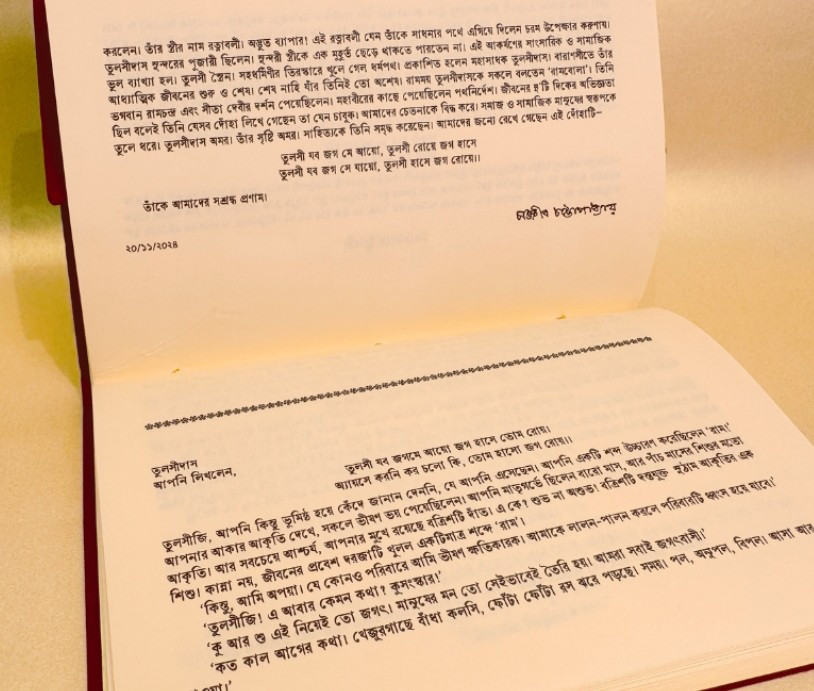 করলেন। তাঁর স্ত্রীর নাম রত্নাবলী। অদ্ভুত ব্যাপার! এই রত্নাবলী যেন তাঁকে সাধনার পথে এগিয়ে দিলেন চরম উপেক্ষার করুণায়।
তুলসীদাস সুন্দরের পূজারী ছিলেন। সুন্দরী স্ত্রীকে এক মুহূর্ত ছেড়ে থাকতে পারতেন না। এই আকর্ষণের সাংসারিক ও সামাজিক
ভুল ব্যাখ্যা হল। তুলসী স্ত্রৈন। সহধর্মিণীর তিরস্কারে খুলে গেল ধর্মপথ। প্রকাশিত হলেন মহাসাধক তুলসীদাস। বারাণসীতে তাঁর
আধ্যাত্মিক জীবনের শুরু ও শেষ। শেষ নাহি যাঁর তিনিই তো অশেষ। রামময় তুলসীদাসকে সকলে বলতেন ‘রামবোলা’। তিনি
ভগবান রামচন্দ্র এবং সীতা দেবীর দর্শন পেয়েছিলেন। মহাবীরের কাছে পেয়েছিলেন পথনির্দেশ। জীবনের দু'টি দিকের অভিজ্ঞতা
ছিল বলেই তিনি যেসব দোঁহা লিখে গেছেন তা যেন চাবুক। আমাদের চেতনাকে বিদ্ধ করে। সমাজ ও সামাজিক মানুষের স্বরূপকে
তুলে ধরে। তুলসীদাস অমর। তাঁর সৃষ্টি অমর। সাহিত্যকে তিনি সমৃদ্ধ করেছেন। আমাদের জন্যে রেখে গেছেন এই দোঁহাটি–
তুলসী যব জগ মে আয়ো, তুলসী রোয়ে জগ হাসে
তুলসী যব জগ সে যায়ো, তুলসী হাসে জগ রোয়ে।।
তাঁকে আমাদের সশ্রদ্ধ প্রণাম।
সঞ্জীব চট্টোপাধ্যায়
২০/১১/২০২৪
তুলসীদাস
আপনি লিখলেন,
তুলসী যব জগমে আয়ো জগ হাসে তোম রোয়।
অ্যায়সে করনি কর চলো কি, তোম হাসো জগ রোয়।।
তুলসীজি, আপনি কিন্তু ভূমিষ্ঠ হয়ে কেঁদে জানান দেননি, যে আপনি এসেছেন। আপনি একটি শব্দ উচ্চারণ করেছিলেন ‘রাম।’
আপনার আকার আকৃতি দেখে, সকলে ভীষণ ভয় পেয়েছিলেন। আপনি মাতৃগর্ভে ছিলেন বারো মাস, আর পাঁচ মাসের শিশুর মতো
আকৃতি। আর সবচেয়ে আশ্চর্য, আপনার মুখে রয়েছে বত্রিশটি দাঁত। এ কে? শুভ না অশুভ! বত্রিশটি দন্তযুক্ত সুঠাম আকৃতির এক
শিশু। কান্না নয়, জীবনের প্রবেশ দরজাটি খুলল একটিমাত্র শব্দে ‘রাম’।
‘কিন্তু, আমি অপয়া। যে কোনও পরিবারে আমি ভীষণ ক্ষতিকারক। আমাকে লালন-পালন করলে পরিবারটি ধ্বংস হয়ে যাবে।’
‘তুলসীজি! এ আবার কেমন কথা? কুসংস্কার!’
‘কু আর শু এই নিয়েই তো জগৎ। মানুষের মন তো সেইভাবেই তৈরি হয়। আমরা সবাই জগৎবাসী।’
‘কত কাল আগের কথা। খেজুরগাছে বাঁধা কলসি, ফোঁটা ফোঁটা রস ঝরে পড়ছে। সময়। পল, অনুপল, বিপল। আসা আর